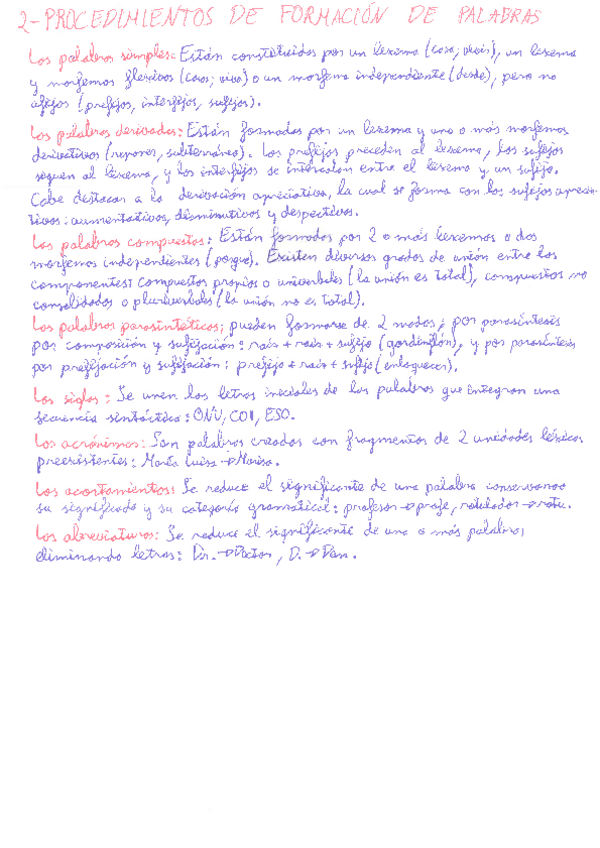 2-PROCEDIMIENTOS DE FORMACIÓN DE PALABRAS
Las palabras simples: Están constituidas por un lexema (casa; vivir), un lexema
y morfemas flexivos (casas; vivo) o un morfema independiente (desde), pero no
afijos (prefijos, interfijos, sufijos).
Las palabras derivadas: Están formadas por un lexema y uno o más morfemas
derivativos (reponer, subterráneo). Los prefijos preceden al lexema, los sufijos
siguen al lexema, y los interfijos se intercalan entre el lexema y un sufijo.
Cabe destacar a la derivación apreciativa, la cual se forma con los sufijos aprecia-
tivos: aumentativos, diminutivos y despectivos.
Las palabras compuestas: Están formadas por 2 o más lexemas o dos
morfemas independientes (porque). Existen diversos grados de unión entre los
componentes: compuestos propios o univerbales (la unión es total), compuestos no
consolidados o pluriverbales (la unión no es total).
Las palabras parasintéticas; pueden formarse de 2 modos; por parasíntesis
por composición y sufijación: raíz + raíz + sufijo (gordinflón), y por parasíntesis
por prefijación y sufijación: prefijo + raíz + sufijo (enloquecer).
Las siglas: Se unen las letras iniciales de las palabras que integran una
secuencia sintáctica: ONU, COI, ESO.
Los acrónimos: Son palabras creadas con fragmentos de 2 unidades léxicas
preexistentes: María Luisa → Marisa.
Los acortamientos: Se reduce el significante de una palabra conservando
su significado y su categoría gramatical: profesor → profe, rotulador → rotu.
Las abreviaturas: Se reduce el significante de una o más palabras,
eliminando letras: Dr. → Doctor, D. → Don.